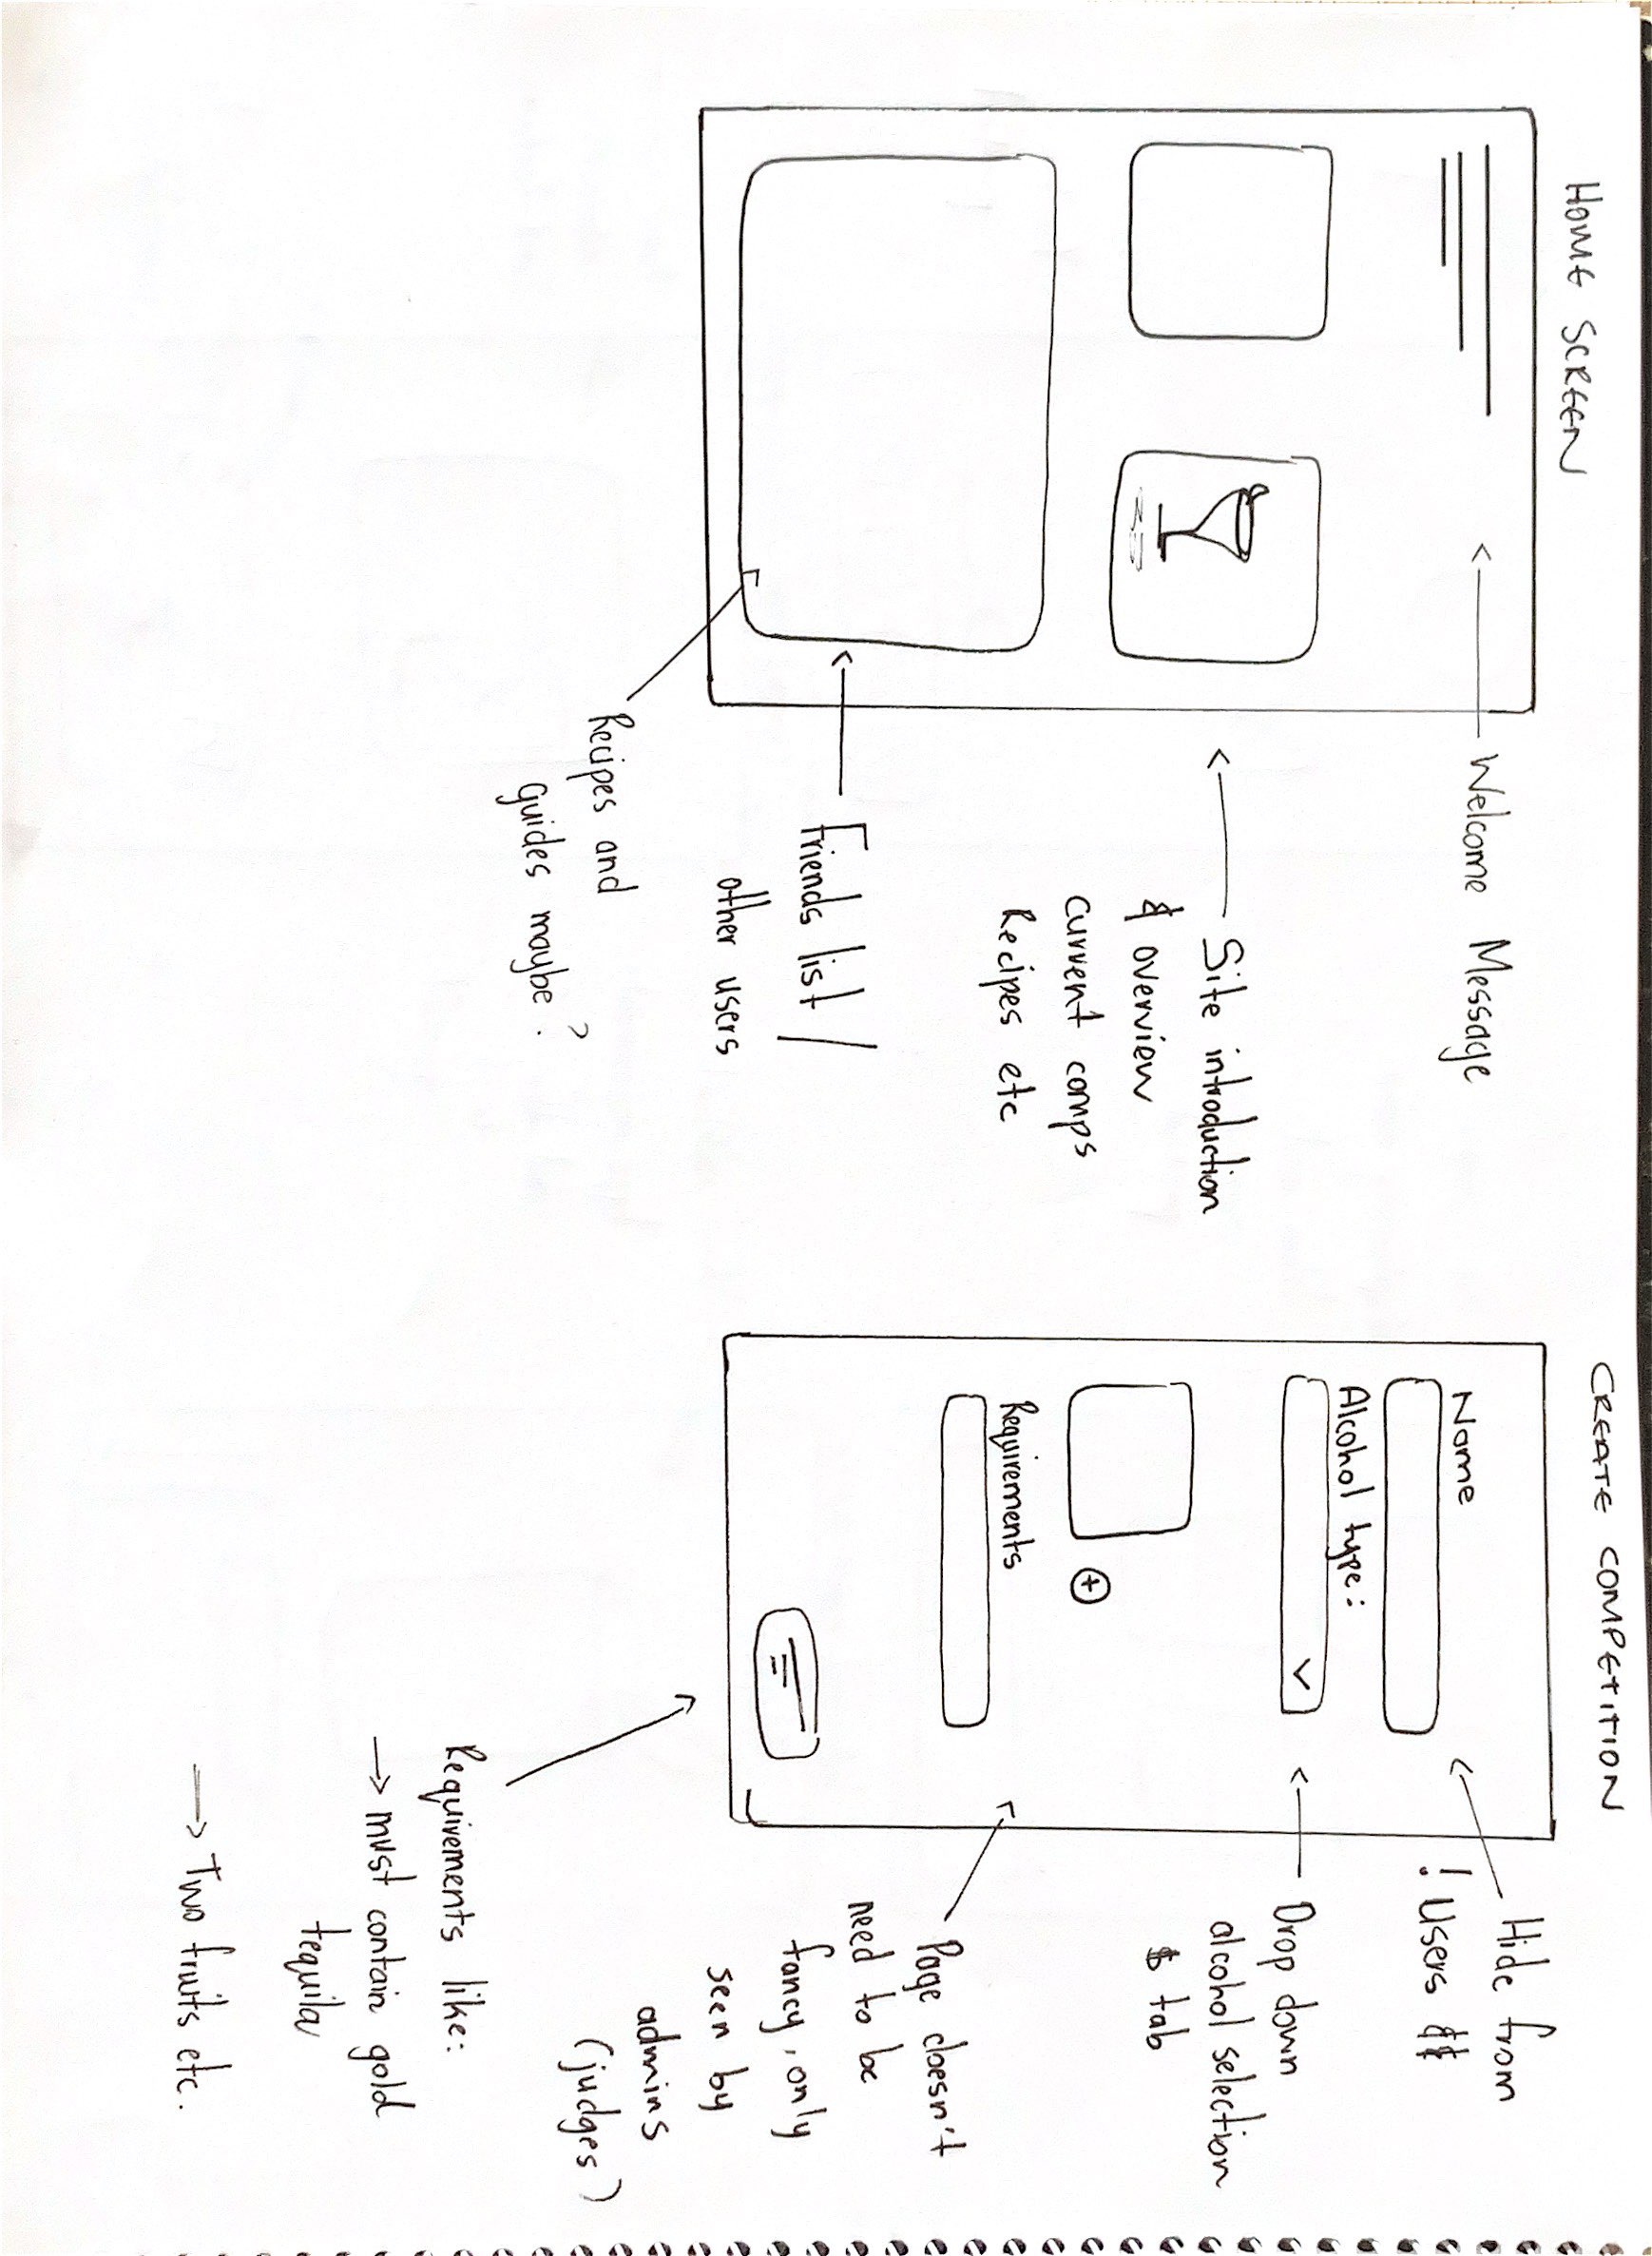 HOME SCREEN
Welcome Message
Site introduction
& overview
current comps
Recipes etc
Friends list /
other users
Recipes and
guides maybe?
CREATE COMPETITION
Name
Alcohol type:
Requirements
Hide from
! Users
Drop down
alcohol selection
tab
Page doesn't
need to be
fancy, only
seen by
admins
(judges)
Requirements like:
→ must contain gold
tequila
→ Two fruits etc.